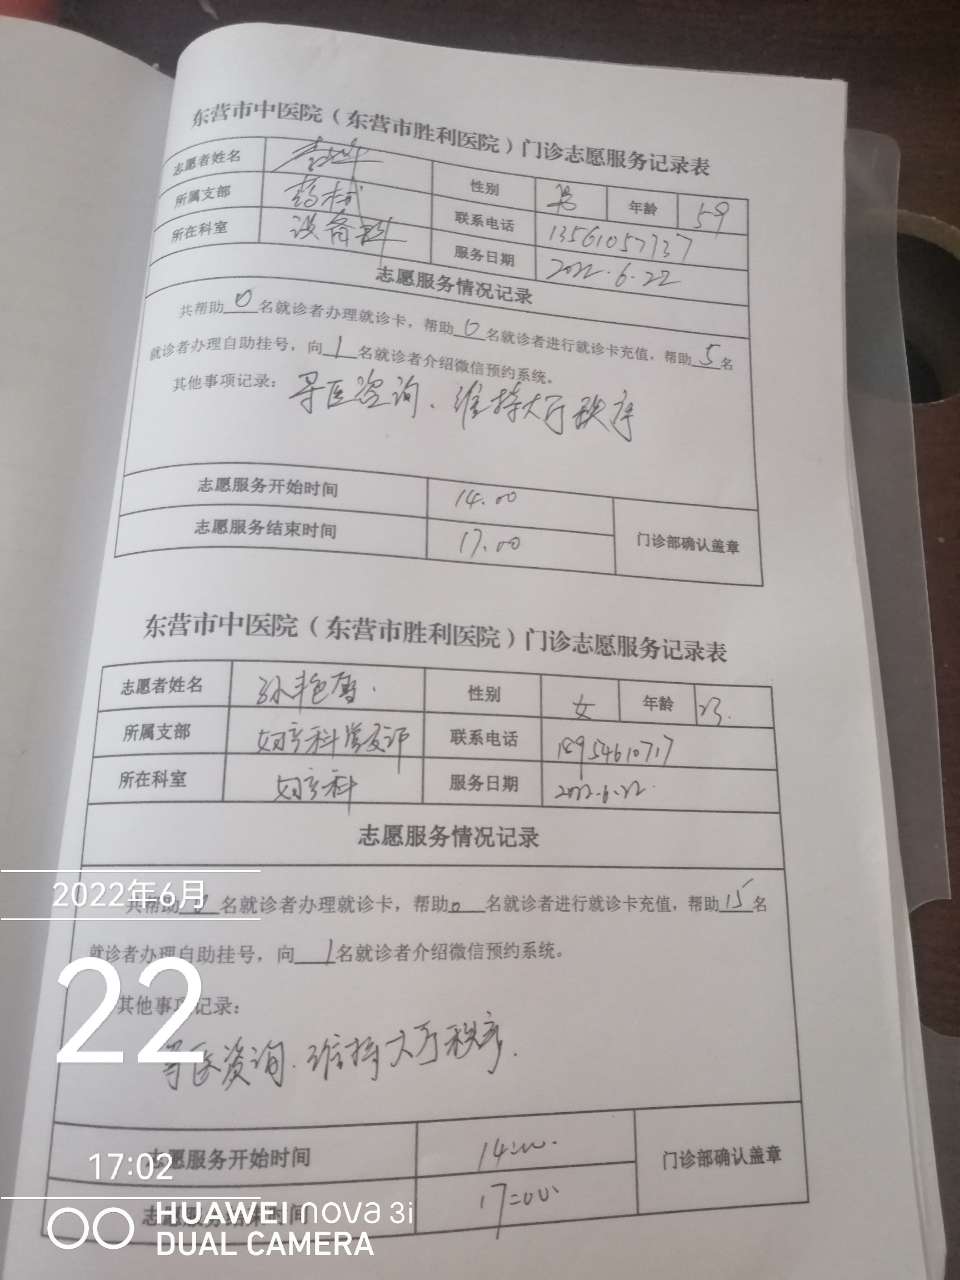 东营市中医院（东营市胜利医院）门诊志愿服务记录表
志愿者姓名 性别 男 年龄 59
所属支部 药械 联系电话 13561057737
所在科室 设备科 服务日期 2022.6.22
志愿服务情况记录
共帮助0名就诊者办理就诊卡，帮助0名就诊者进行就诊卡充值，帮助5名
就诊者办理自助挂号，向1名就诊者介绍微信预约系统。
其他事项记录：导医咨询、维持大厅秩序
志愿服务开始时间 14.00
志愿服务结束时间 17.00 门诊部确认盖章
东营市中医院（东营市胜利医院）门诊志愿服务记录表
志愿者姓名 孙艳 性别 女 年龄
所属支部 妇产科 联系电话 18954610717
所在科室 妇产科 服务日期 2022.6.22
志愿服务情况记录
共帮助0名就诊者办理就诊卡，帮助0名就诊者进行就诊卡充值，帮助15名
就诊者办理自助挂号，向1名就诊者介绍微信预约系统。
其他事项记录：
导医资询.维持大厅秩序.
志愿服务开始时间 14:00 门诊部确认盖章
志愿服务结束时间 17:00
2022年6月
22
17:02
HUAWEI nova 3i
DUAL CAMERA